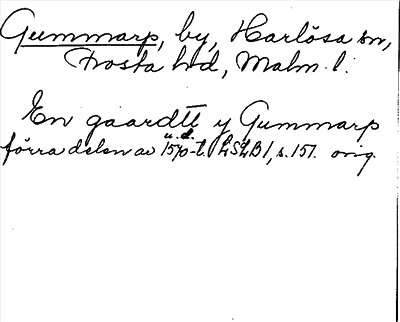 Gummarp, by, Harlösa sn,
Frosta hd, Malm. l.
En gaardtt y Gummarp
u.d.
förra delen av 1570-t. LSLB 1, s. 151. orig.